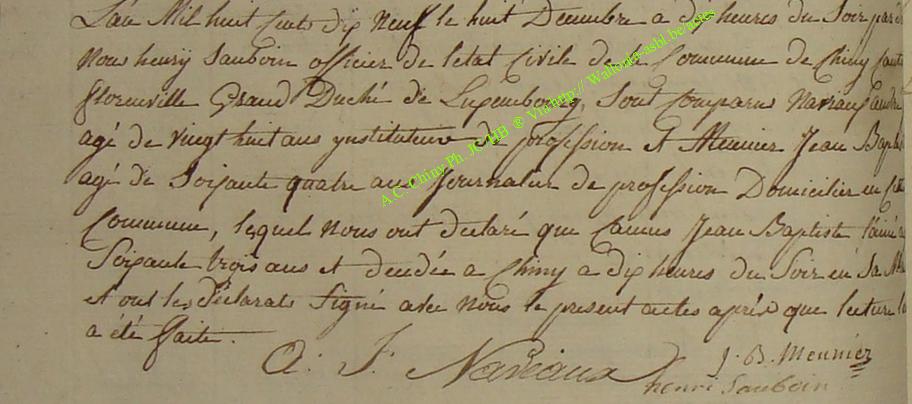 L'an Mil huit Cents dix Neuf le huit Decembre a dix heures du Soir par de
Nous henry Sauboin officier de l'etat Civile de la Commune de Chiny
florenville Grand Duché de Luxembourg, Sont Comparus
agé de vingt huit ans ynstituteur de profession et Meunier Jean Bapt
agé de Soixante quatre ans Journalier de profession Domicilier en
Commune, lesquel Nous ont declaré que Camus Jean Baptiste l'ainé
Soixante trois ans et decedée a Chiny a dix heures du Soir en Sa
et ont les déclarats Signé avec Nous le present actes aprés que lecture
a été faite.
A: J: Naviaux J. B. Meunier
henri Sauboin
A.C. Chiny Ph. JCHB ® Via http:// Wallonia-asbl.be/actes